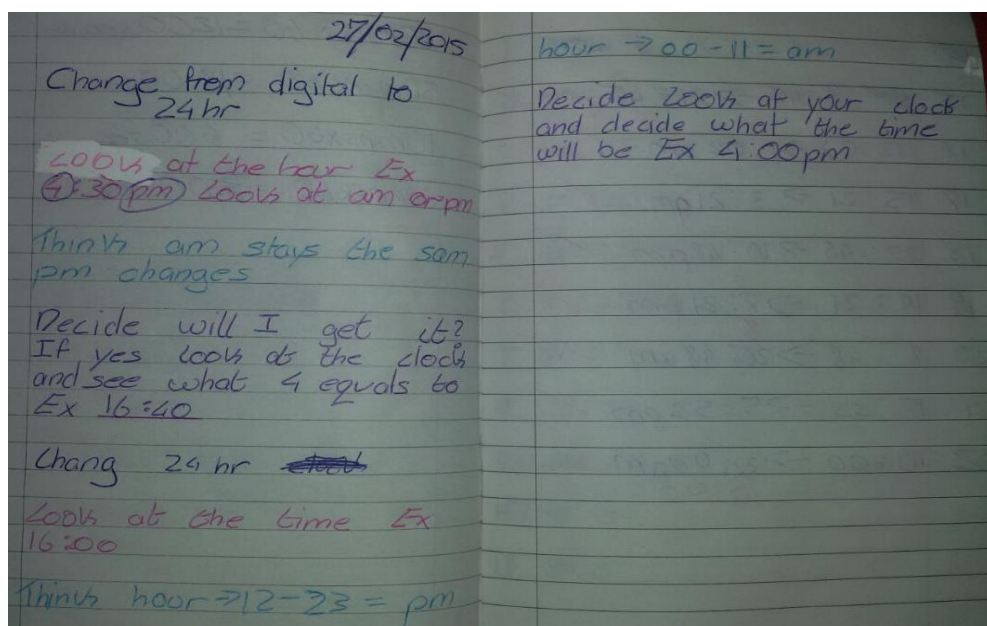 27/02/2015
Change from digital to
24hr
Look at the hour Ex
4:30 pm Look at am or pm
Think am stays the sam
pm changes
Decide will I get it?
If yes look at the clock
and see what 4 equals to
Ex 16:40
Chang 24 hr
Look at the time Ex
16:00
Think hour → 12-23 = pm
hour → 00-11 = am
Decide Look at your clock
and decide what the time
will be Ex 4:00pm